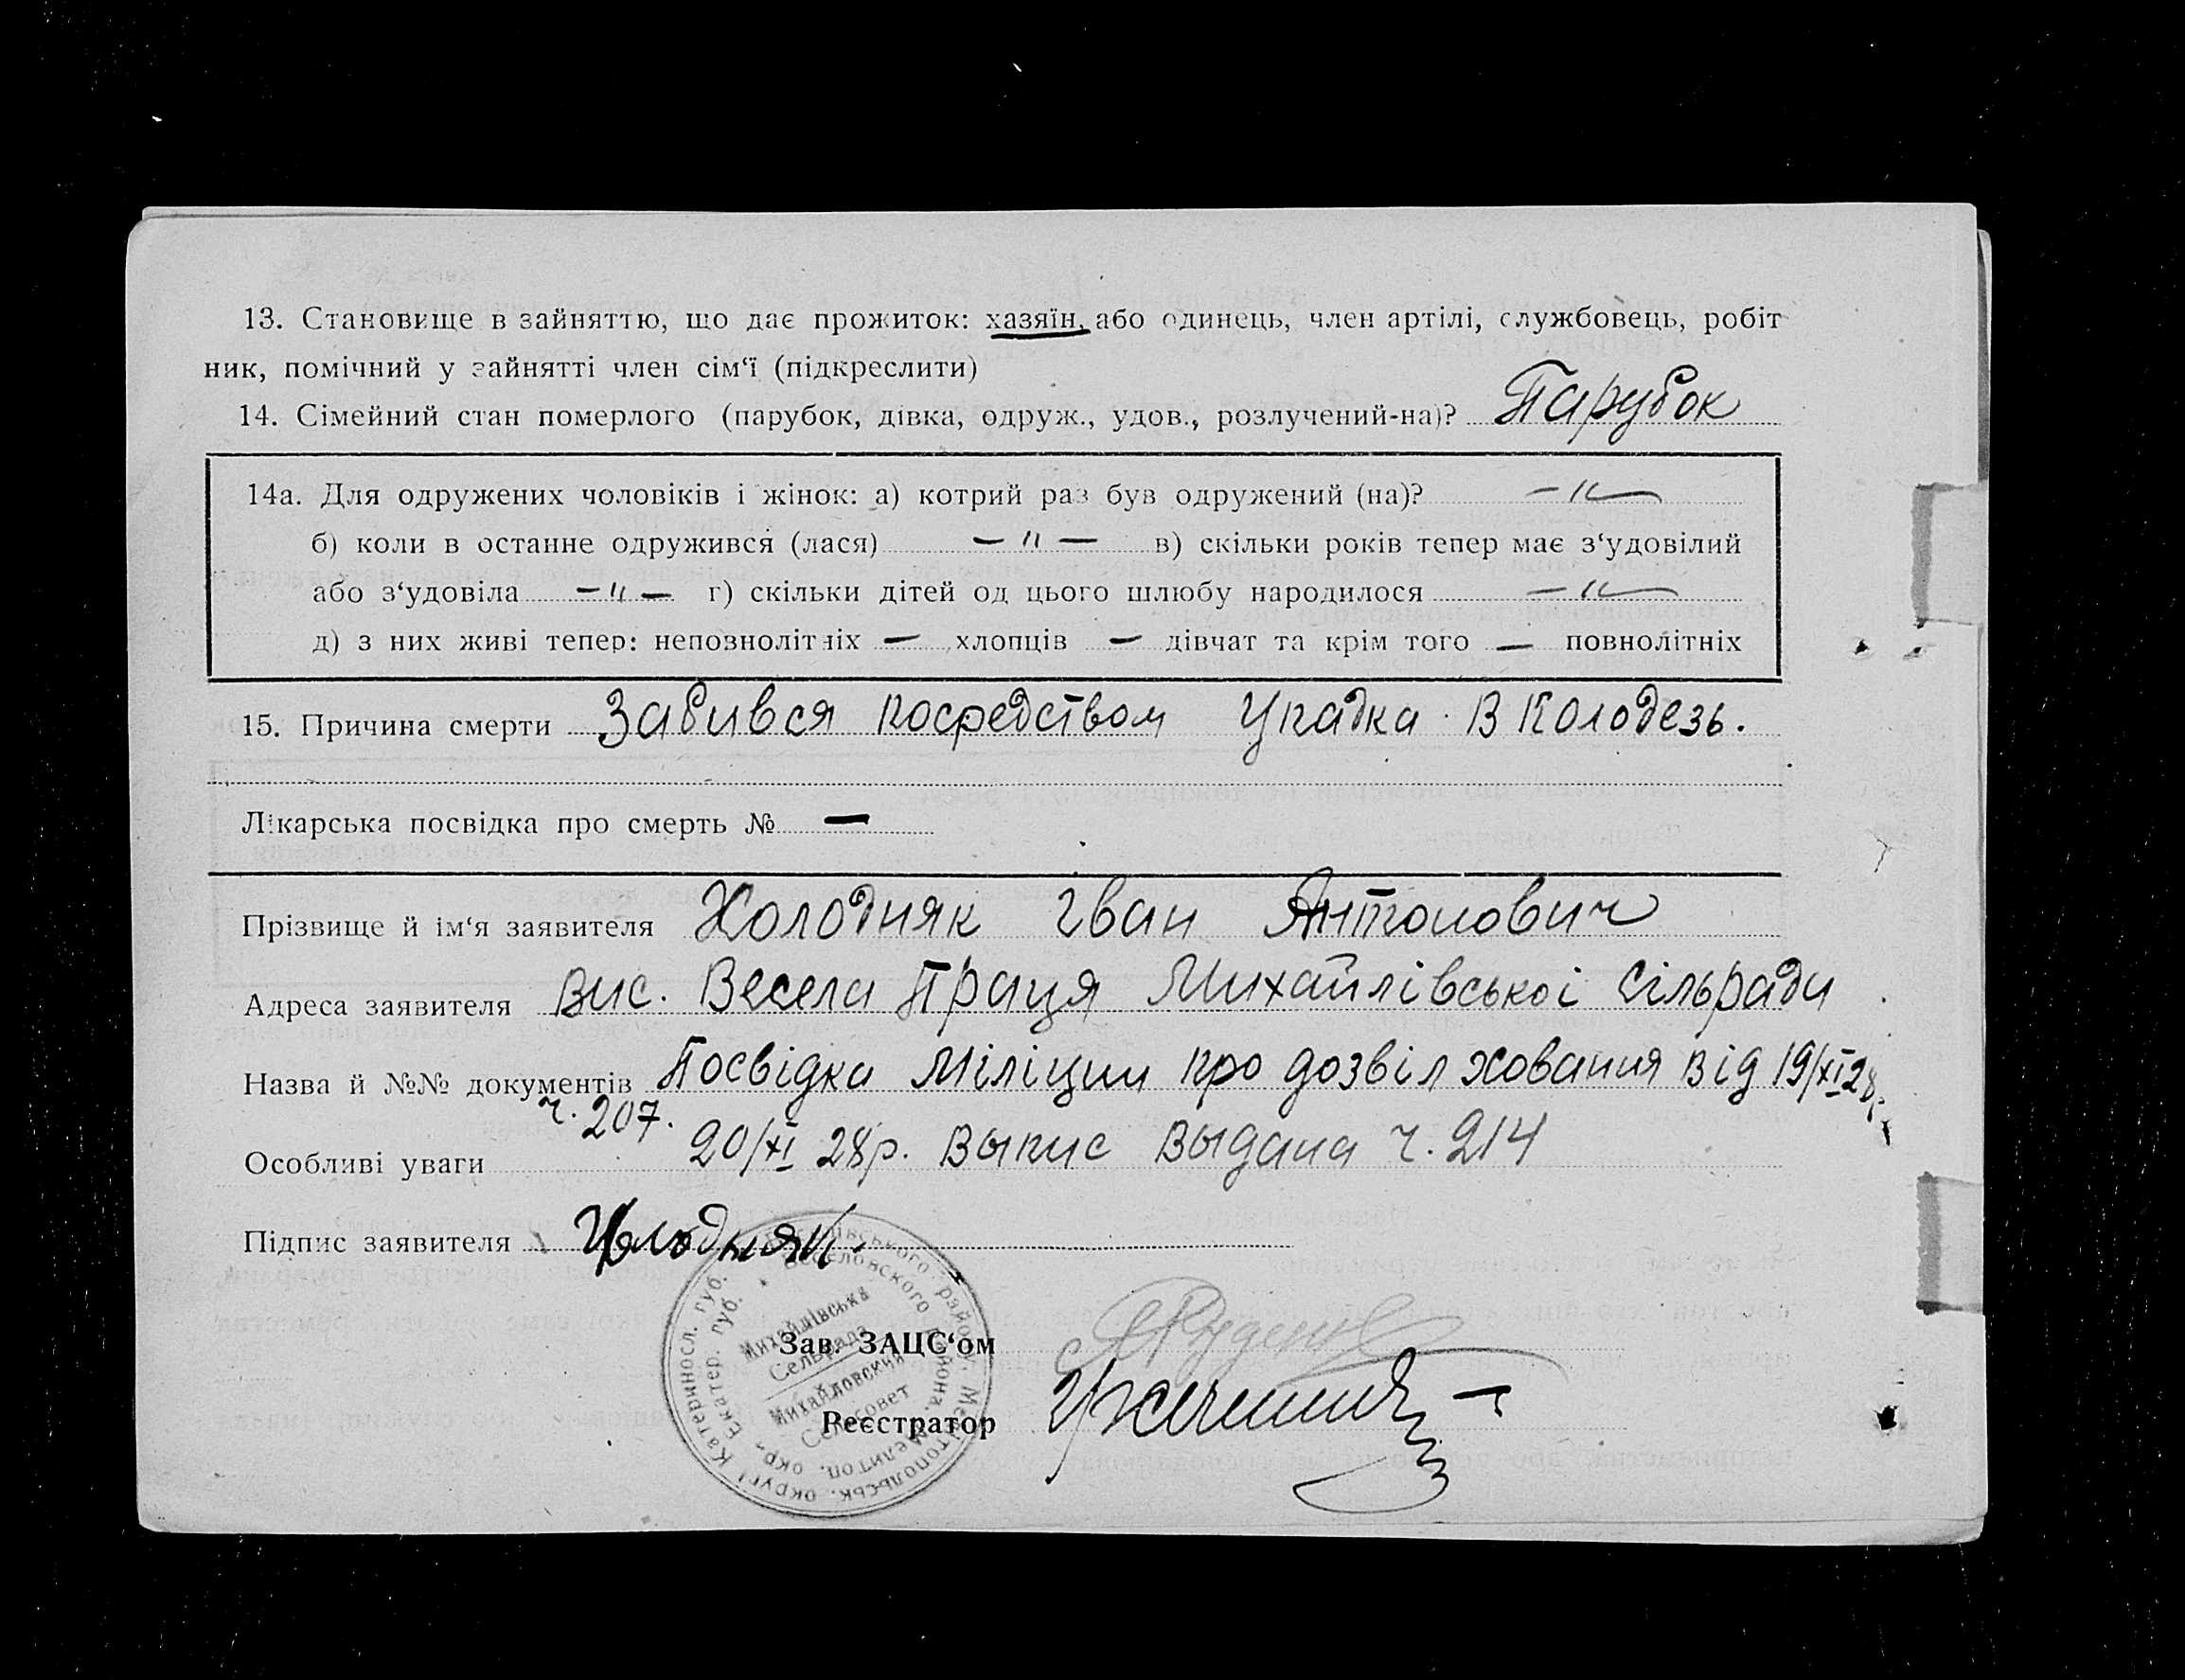 13. Становище в зайняттю, що дає прожиток: хазяїн, або одинець, член артілі, службовець, робіт
ник, помічний у зайнятті член сім‘ї (підкреслити)
14. Сімейний стан померлого (парубок, дівка, одруж., удов., розлучений-на)? Парубок
14а. Для одружених чоловіків і жінок: а) котрий раз був одружений (на)? — „ —
б) коли в останне одружився (лася) — „ — в) скільки років тепер має з‘удовілий
або з‘удовіла — „ — г) скільки дітей од цього шлюбу народилося — „ —
д) з них живі тепер: непознолітніх — хлопців — дівчат та крім того — повнолітніх
15. Причина смерти Забився посредством упадка в колодезь.
Лікарська посвідка про смерть № —
Прізвище й ім‘я заявителя Холодняк Іван Антонович
Адреса заявителя вис. Весела Праця Михайлівської сільради
Назва й №№ документів Посвідка Міліции про дозвіл ховання від 19/XI 28р.
ч. 207.
Особливі уваги 20/XI 28р. Выпис выдана ч. 214
Підпис заявителя Холодняк.
Зав. ЗАЦС‘ом
Реєстратор
Михайлівська
Сельрада
Михайловский
Сельсовет
району, Мелітопольськ. округи Катериносл. губ.
Веселовского района, Мелитоп. окр. Екатер. губ.